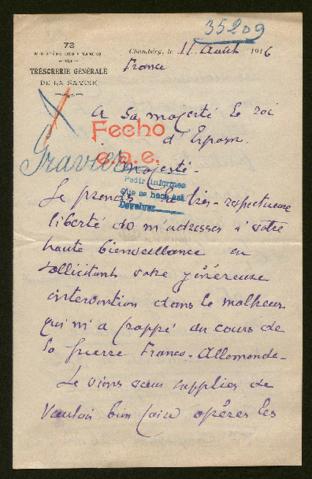 35209
73
MINISTÈRE DES FINANCES
TRÉSORERIE GÉNÉRALE
DE LA SAVOIE
Chambéry, le 11 Août 1916
France
A Sa majesté le roi
d'Espagne
Fecho
Gravier
Majesté
Pedir informes
que se hace así
Devolver
Je prends la très-respectueuse
liberté de m'adresser à votre
haute bienveillance en
sollicitant votre généreuse
intervention dans le malheur
qui m'a frappé au cours de
la guerre Franco-Allemande.
Je viens vous supplier de
vouloir bien faire opérer les